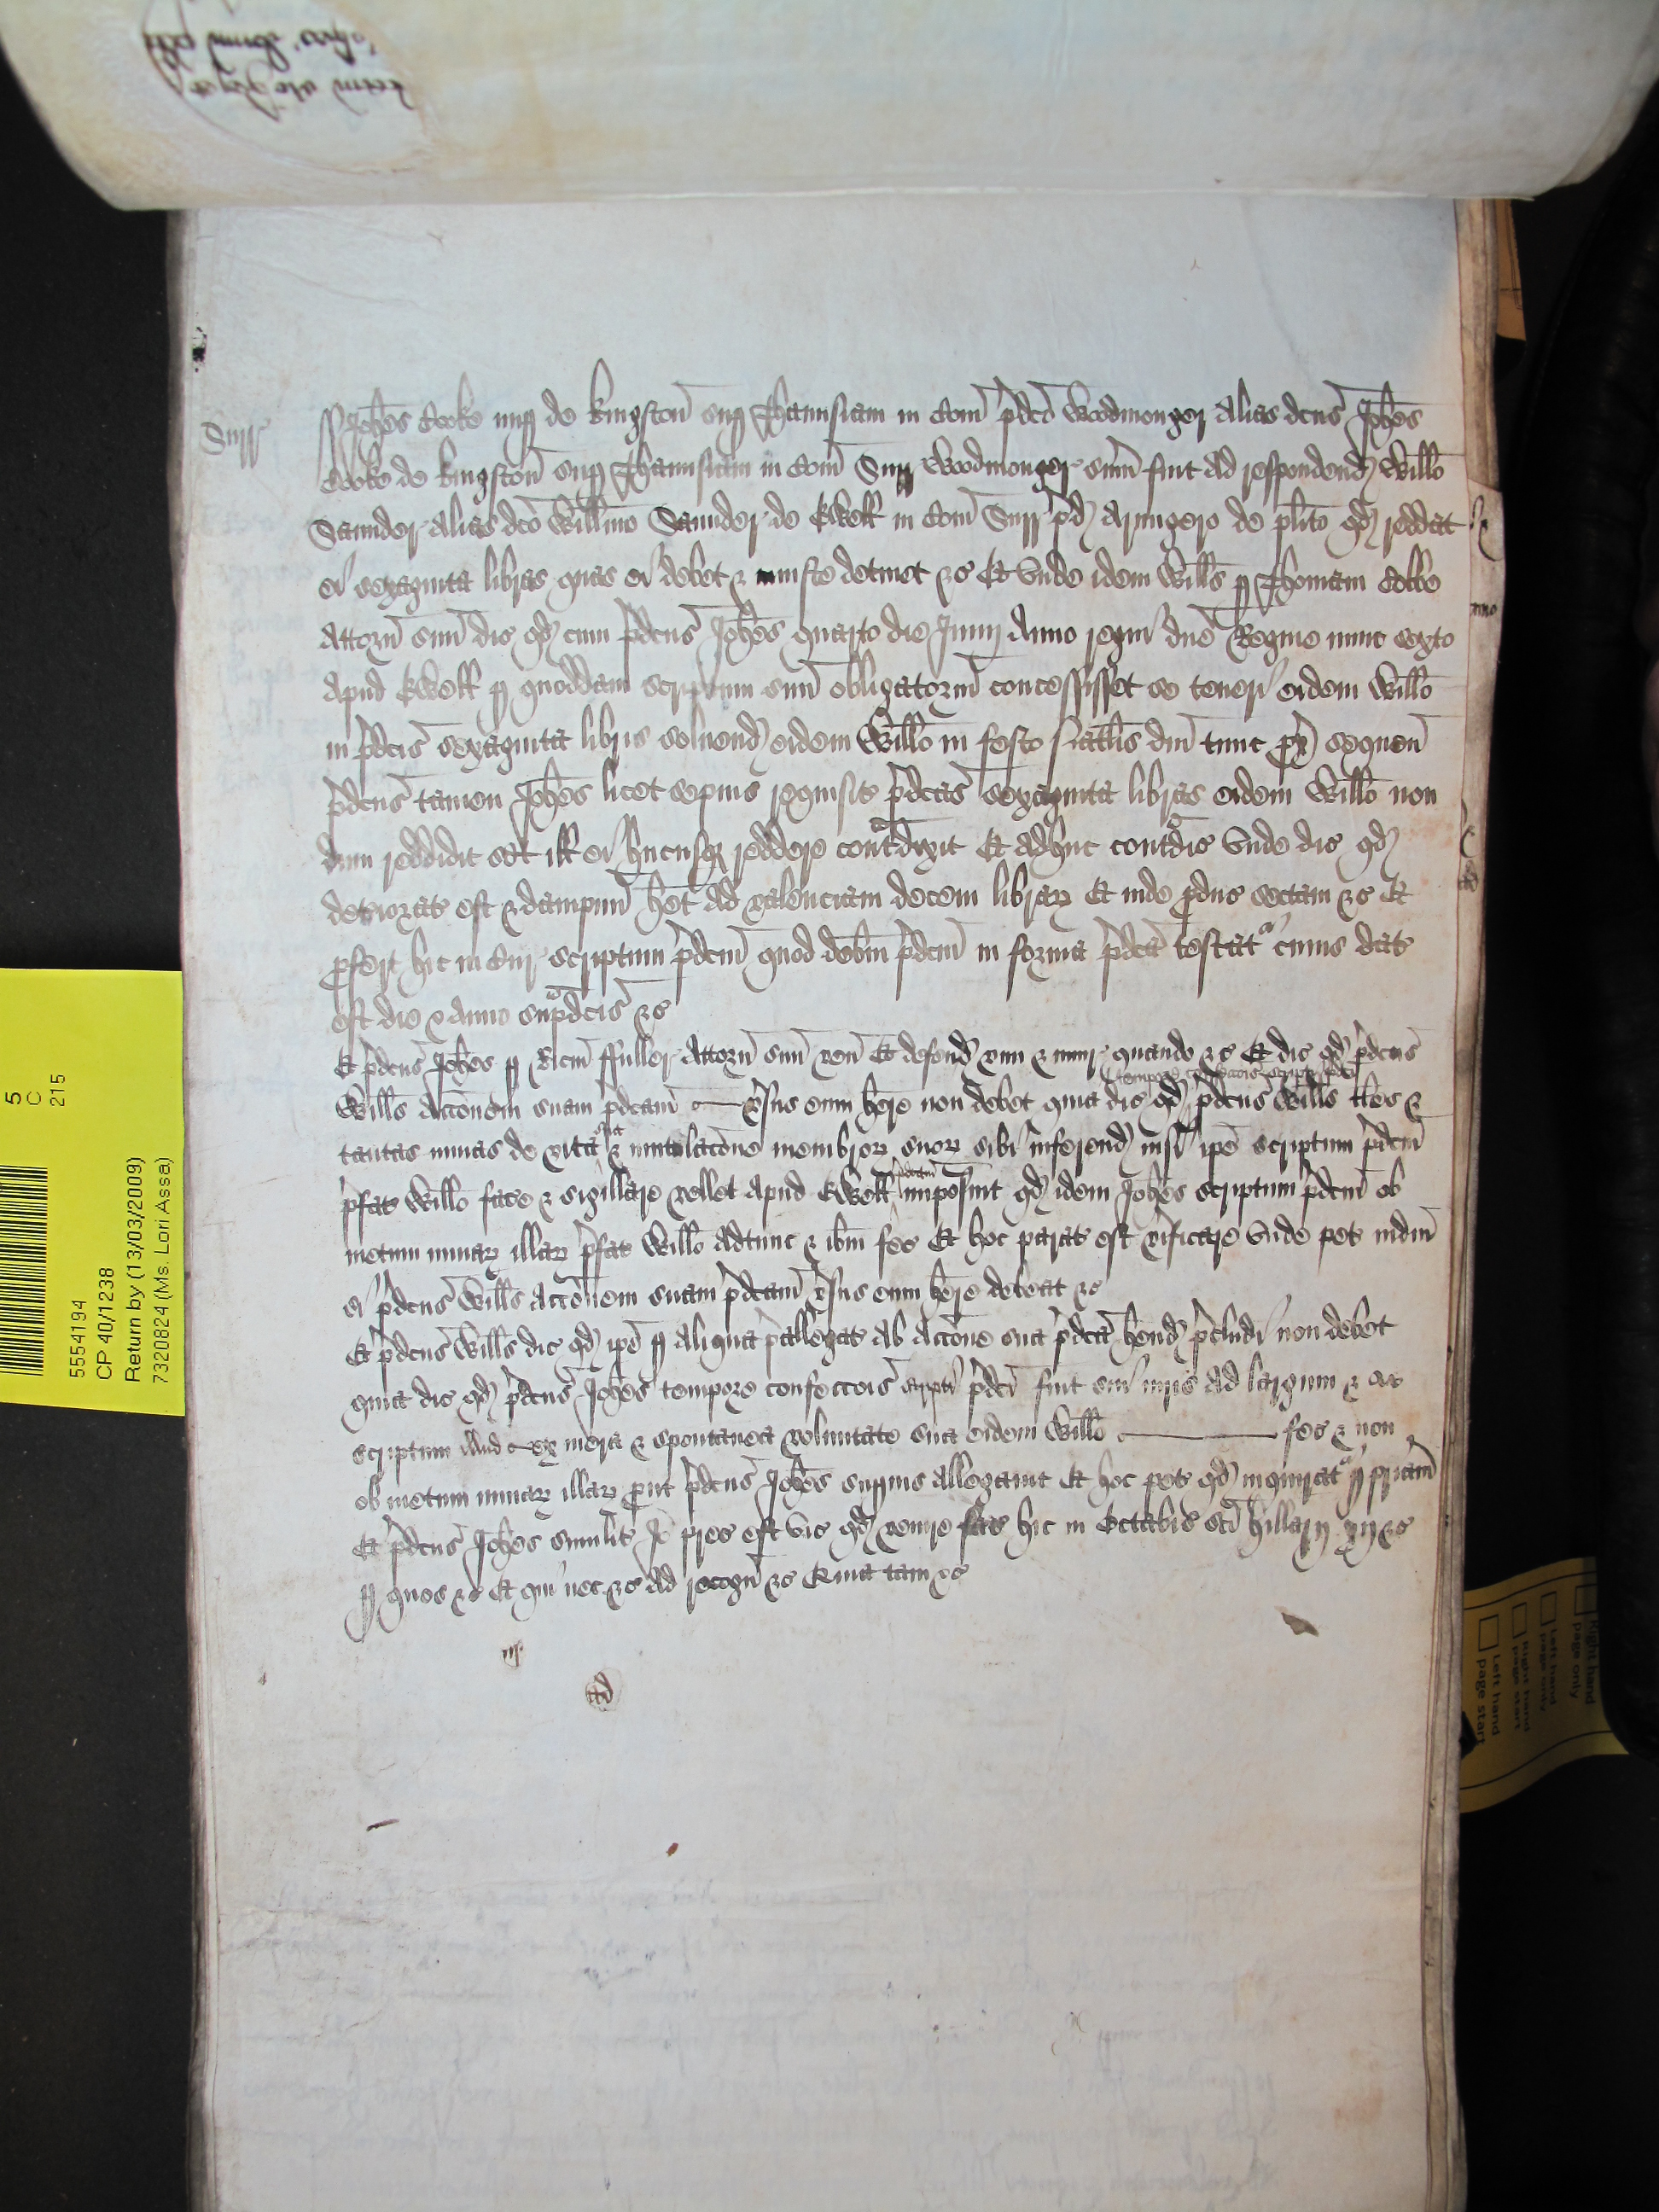 Surr
Johes Cooke nup de Kingston sup Thamisiam in Com pdco Woodmonger alias dcus Johes
Cooke de Kingston sup Thamisiam in Com Surr Woodmonger sum fuit ad respondend Willo
Saunder alias dco Willimo Saunder de Ewell in Com Surr pd Armigero de plito qd reddat
ei sexaginta libras quas ei debet & iniuste detinet &c Et unde idem Wills p Thomam Cobbe
Attorn suu dic qd cum pdcus Johes quarto die Junij Anno regni dne Regine nunc sexto
apud Ewell p quoddam scriptum suu obligatoriu concessisset se teneri eidem Willo
in pdcis sexaginta libris solvend eidem Willo in festo Natlis dni tunc px sequen
pdcus tamen Johes licet sepius requisit pdcas sexaginta libras eidem Willo non
dum reddidit set ill ei hucusq reddere contadixit Et adhuc contadic unde dic qd
deteriorat est & dampnu het ad valenciam decem librar Et inde pduc sectam &c Et
pfert hic in Cur scriptum pdcm quod debm pdcm in forma pdca testat cuius dat
est die & anno supadcis &c
Et pdcus Johes p Ricm ffuller Attorn suu ven Et defend vim & iniur quando &c Et dic qd pdcus
tempore confeccois scripti pdci
Wills accoem suam pdcam vsus eum here non debet quia dic qd pdcus Wills tles &
tantas minas de vita sua & mutulacone membror suor sibi inferend nisi ipe scriptum pdcm
pfat Willo facere & sigillare vellet apud Ewell pdcam imposuit qd idem Johes scriptum pdcm ob
metum minar illar pfat Willo adtunc & ibm fec Et hoc parat est vificare unde pet iudm
si pdcus Wills accoem suam pdcam vsus eum here debeat &c
Et pdcus Wills dic qd ipe p aliqua pallegat ab accone sua pdca hend pcludi non debet
quia dic qd pdcus Johes tempore confeccois scripti pdci fuit sui iuris ad largum & ac
scriptum illud ex mera & spontanea voluntate sua eidem Willo fec & non
ob metum minar illar put pdcus Johes supius allegavit Et hoc pet qd inquirat p priam
Et pdcus Johes similit Jo prec est vic qd venire fac hic in Octabis sci Hillarij xij &c
p quos &c Et qui nec &c ad recogn &c Quia tam &c
5
C
215
5554194
CP 40/1238
Return by (13/03/2009)
7320824 (Ms. Lori Assa)
Right hand
page only
Left hand
page only
Right hand
page start
Left hand
page start